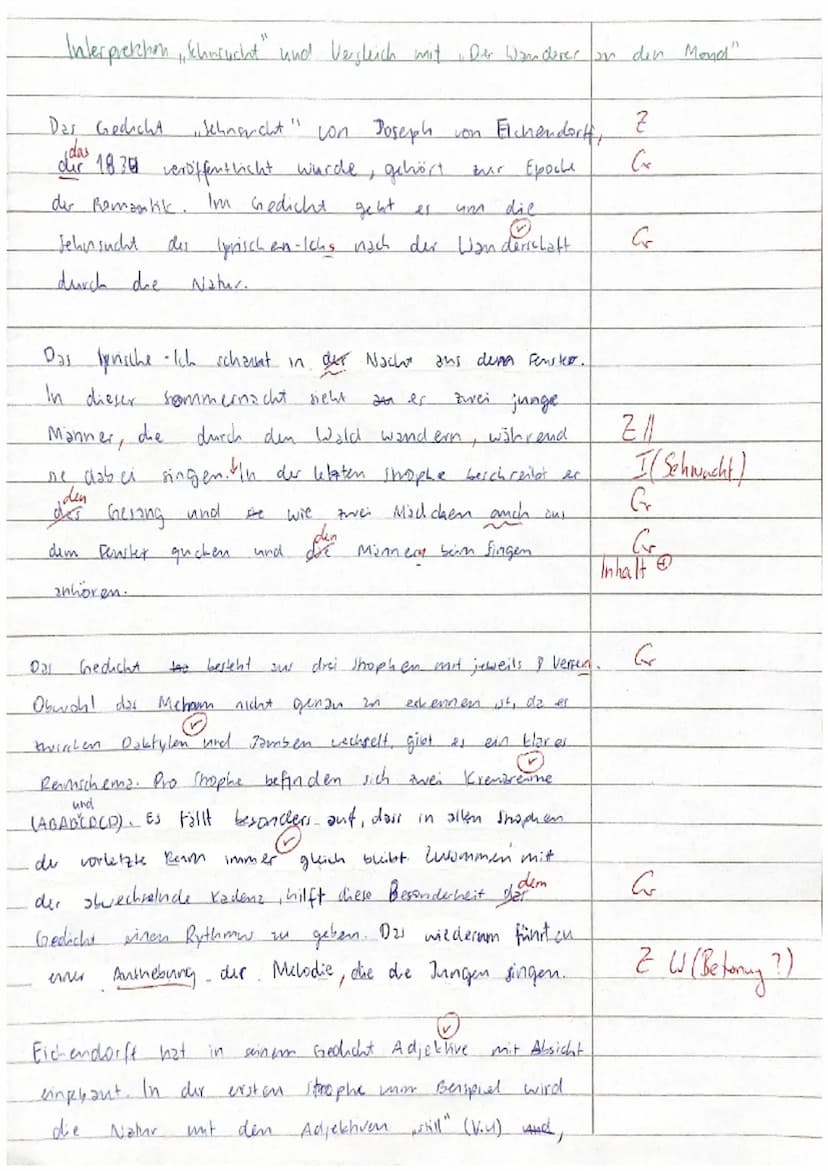 Interpretation „Sehnsucht" und Vergleich mit „Der Wanderer an den Mond"
Das Gedicht „Sehnsucht" von Joseph von Eichendorff, Z
das
der 1830 veröffentlicht wurde, gehört zur Epoche Gr
der Romantik. Im Gedicht geht es um die
Sehnsucht des lyrischen-Ichs nach der Wanderschaft Gr
durch die Natur.
Das lyrische-Ich schaut in der Nacht aus dem Fenster.
In dieser Sommernacht sieht er zwei junge
Männer, die durch den Wald wandern, während Z//
sie dabei singen. In der letzten Strophe beschreibt er I (Sehnsucht)
den
des Gesang und wie zwei Mädchen auch aus Gr
den
dem Fenster gucken und die Männern beim singen Gr
Inhalt +
anhören.
Das Gedicht besteht aus drei Strophen mit jeweils 8 Versen. Gr
Obwohl das Metrum nicht genau zu erkennen ist, da es
zwischen Daktylen und Jamben wechselt, gibt es ein klares
Reimschema. Pro Strophe befinden sich zwei Kreuzreime
und
(ABABCDCD). Es fällt besonders auf, dass in allen Strophen
der vorletzte Reim immer gleich bleibt. Zusammen mit
der abwechselnde Kadenz, hilft diese Besonderheit der dem Gr
Gedicht einen Rythmus zu geben. Das wiederum führt zu
einer Anhebung der Melodie, die die Jungen singen. Z W (Betonung?)
Eichendorff hat in seinem Gedicht Adjektive mit Absicht
eingebaut. In der ersten Strophe zum Beispiel wird
die Natur mit den Adjektiven „still" (V.4) und,